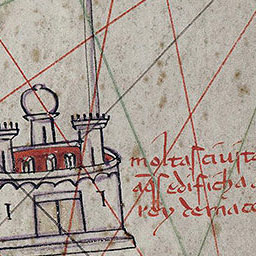 moltas ciuita
aqs edificha
rey de mace